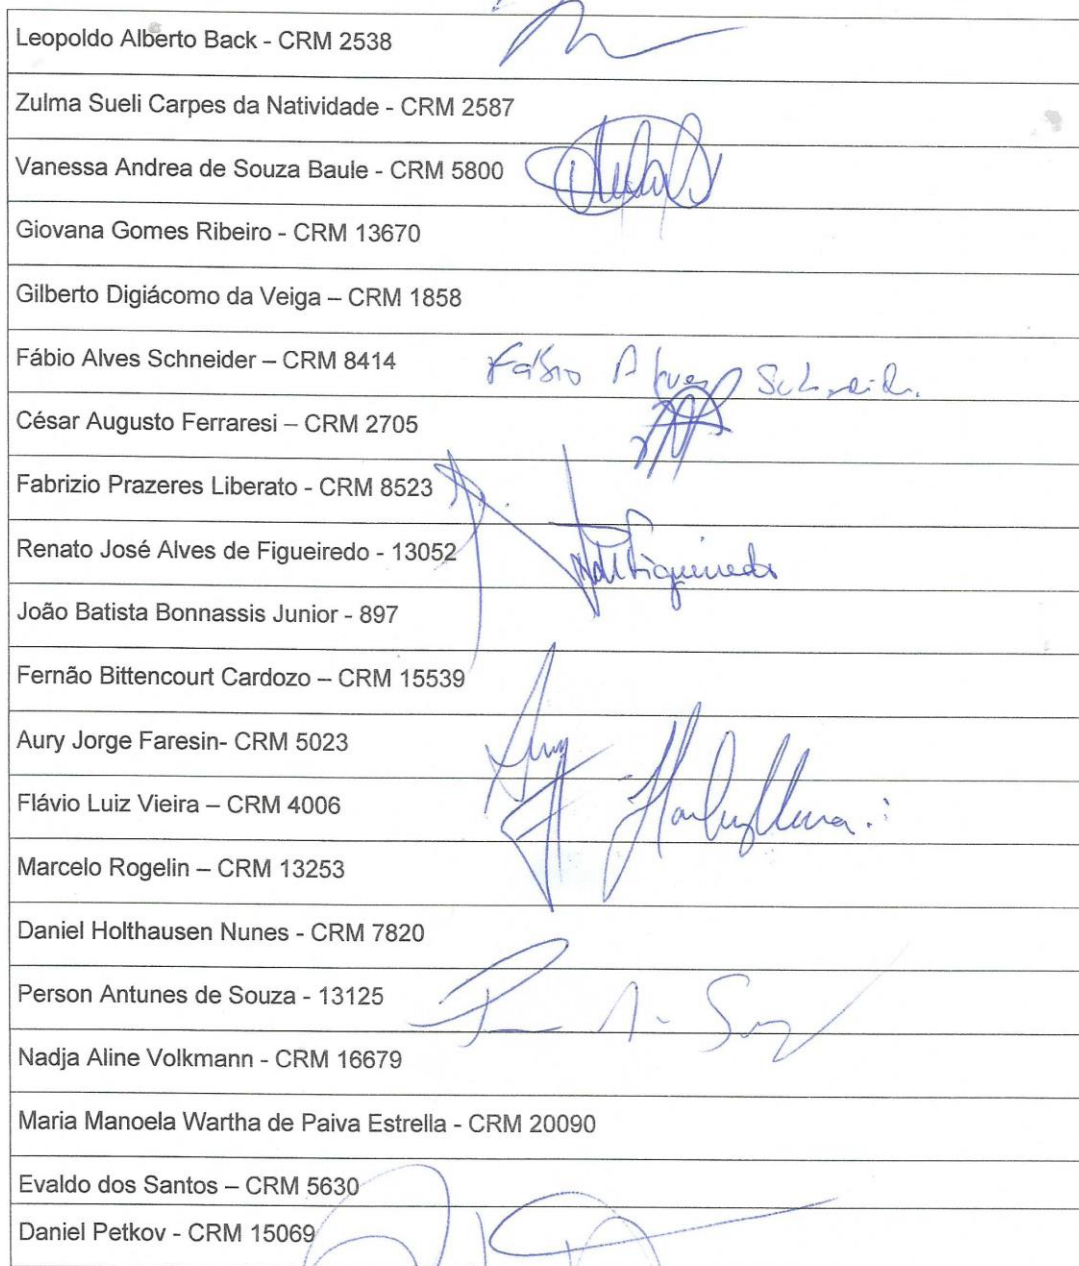 Leopoldo Alberto Back - CRM 2538
Zulma Sueli Carpes da Natividade - CRM 2587
Vanessa Andrea de Souza Baule - CRM 5800
Giovana Gomes Ribeiro - CRM 13670
Gilberto Digiácomo da Veiga – CRM 1858
Fábio Alves Schneider – CRM 8414 Fábio Alves Schneider
César Augusto Ferraresi – CRM 2705
Fabrizio Prazeres Liberato - CRM 8523
Renato José Alves de Figueiredo - 13052
João Batista Bonnassis Junior - 897
Fernão Bittencourt Cardozo – CRM 15539
Aury Jorge Faresin- CRM 5023
Flávio Luiz Vieira – CRM 4006
Marcelo Rogelin – CRM 13253
Daniel Holthausen Nunes - CRM 7820
Person Antunes de Souza - 13125
Nadja Aline Volkmann - CRM 16679
Maria Manoela Wartha de Paiva Estrella - CRM 20090
Evaldo dos Santos – CRM 5630
Daniel Petkov - CRM 15069